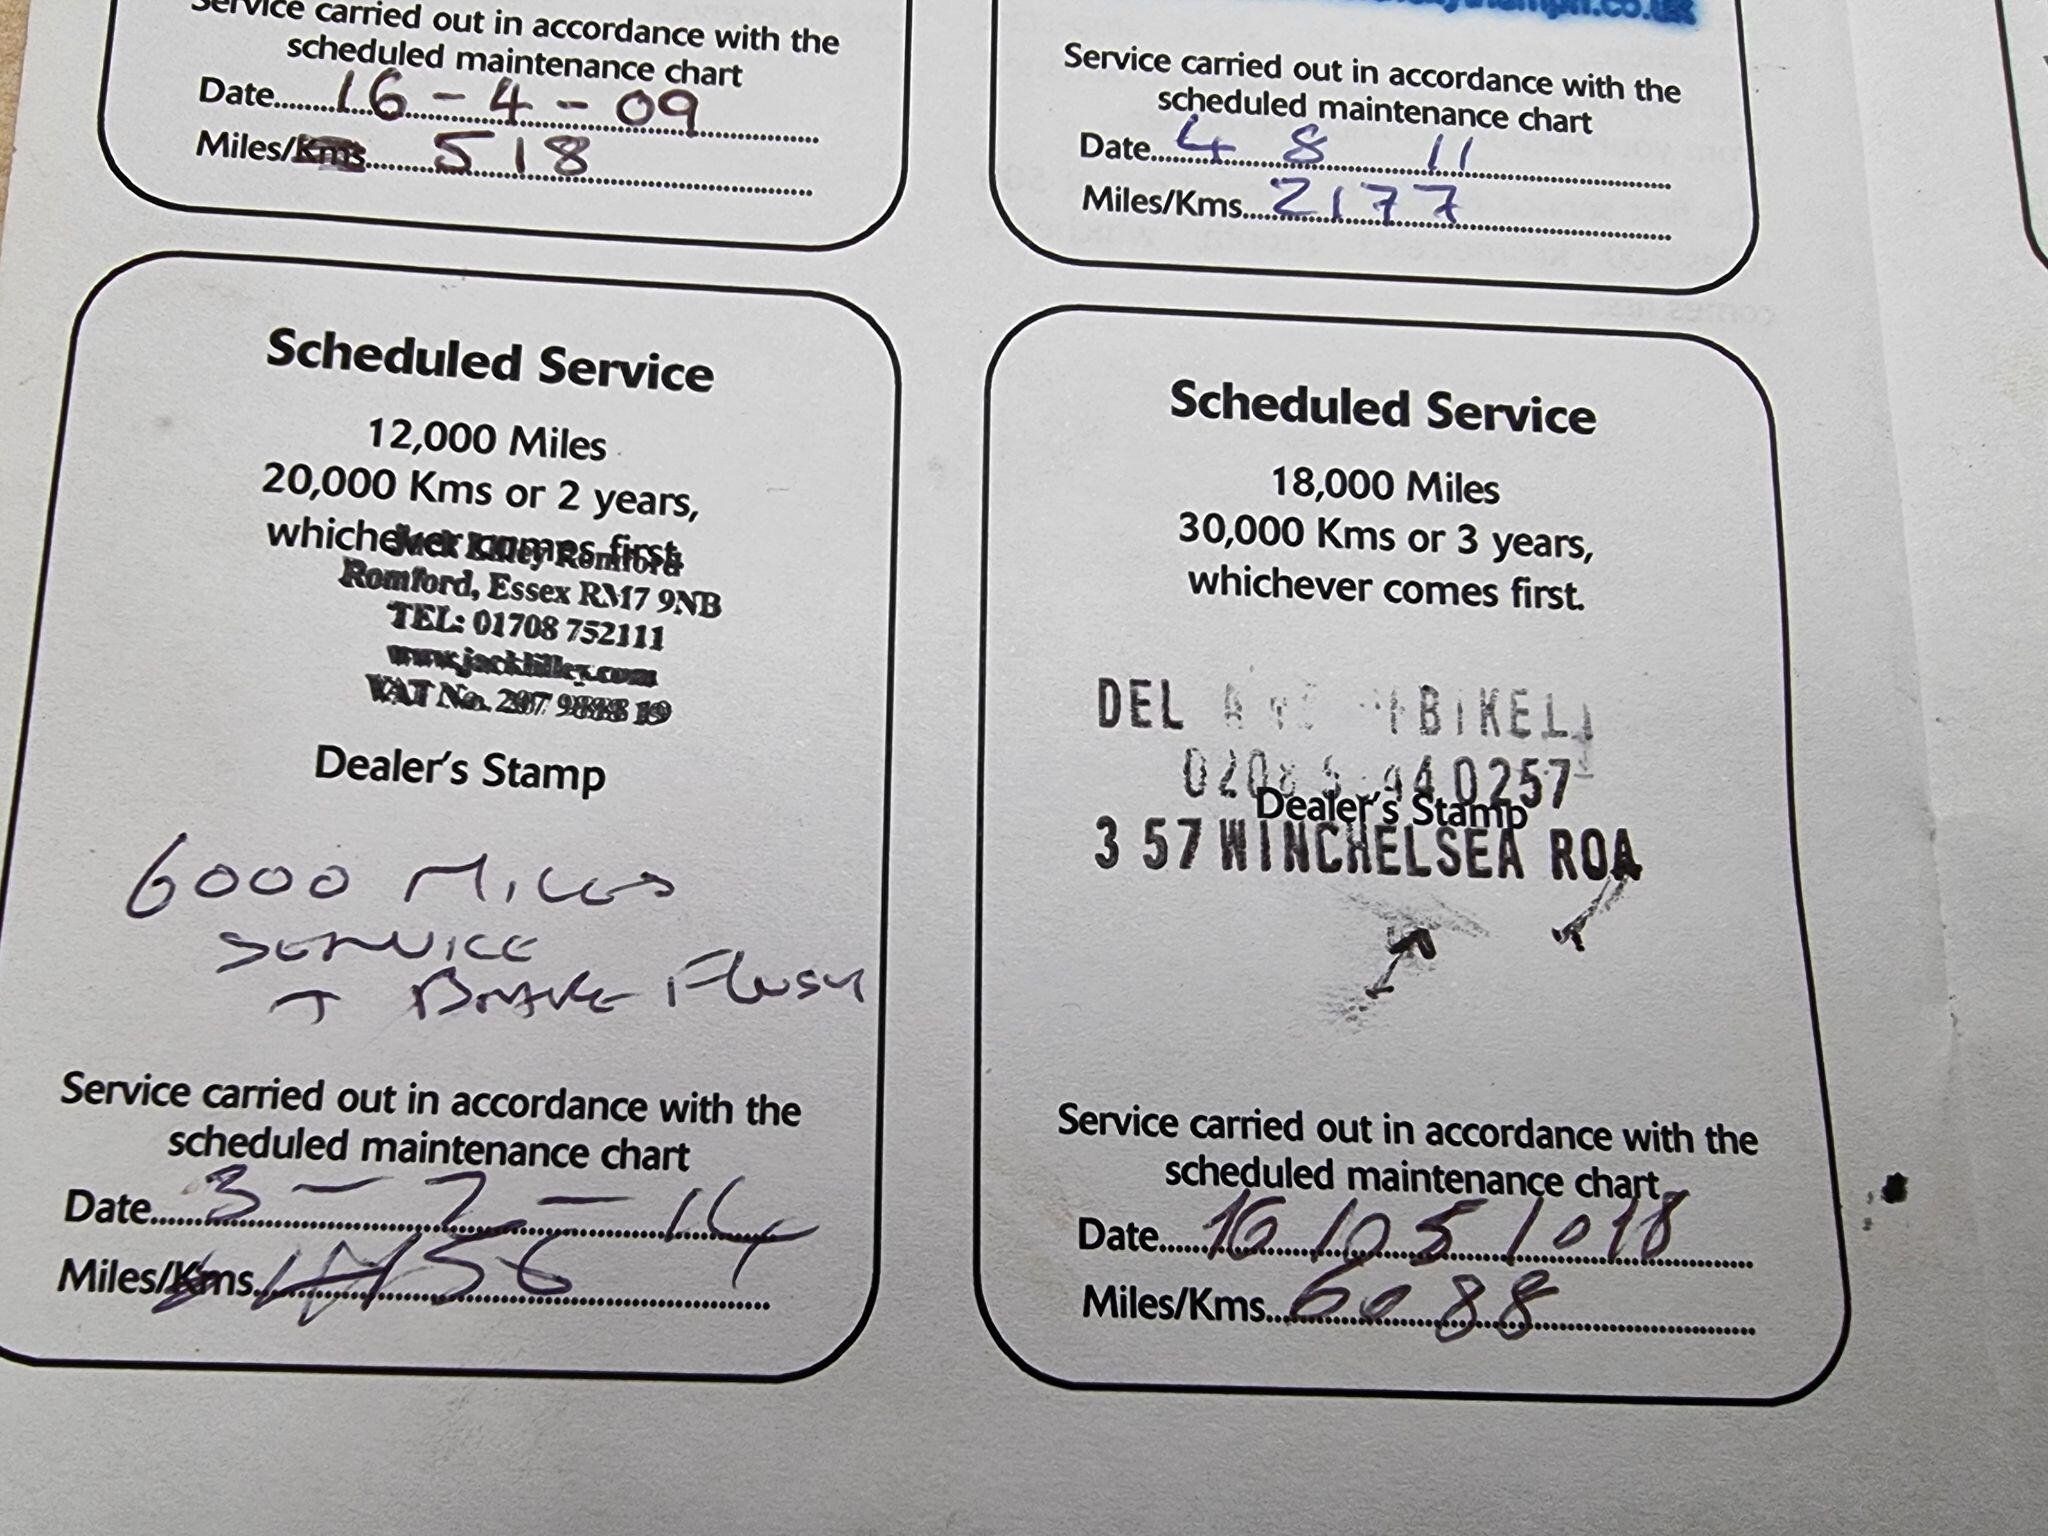 Service carried out in accordance with the
scheduled maintenance chart
Date 16-4-09
Miles/Kms 518
Service carried out in accordance with the
scheduled maintenance chart
Date 4 8 11
Miles/Kms 2177
Scheduled Service
12,000 Miles
20,000 Kms or 2 years,
whichever comes first.
Jack Lilley Romford
Romford, Essex RM7 9NB
TEL: 01708 752111
www.jacklilley.com
VAT No.
Dealer's Stamp
6000 Miles
Service
+ Brake Flush
Service carried out in accordance with the
scheduled maintenance chart
Date 3-7-14
Miles/Kms
Scheduled Service
18,000 Miles
30,000 Kms or 3 years,
whichever comes first.
DEL
Dealer's Stamp
357 WINCHELSEA ROA
Service carried out in accordance with the
scheduled maintenance chart
Date 16/05/018
Miles/Kms 6088